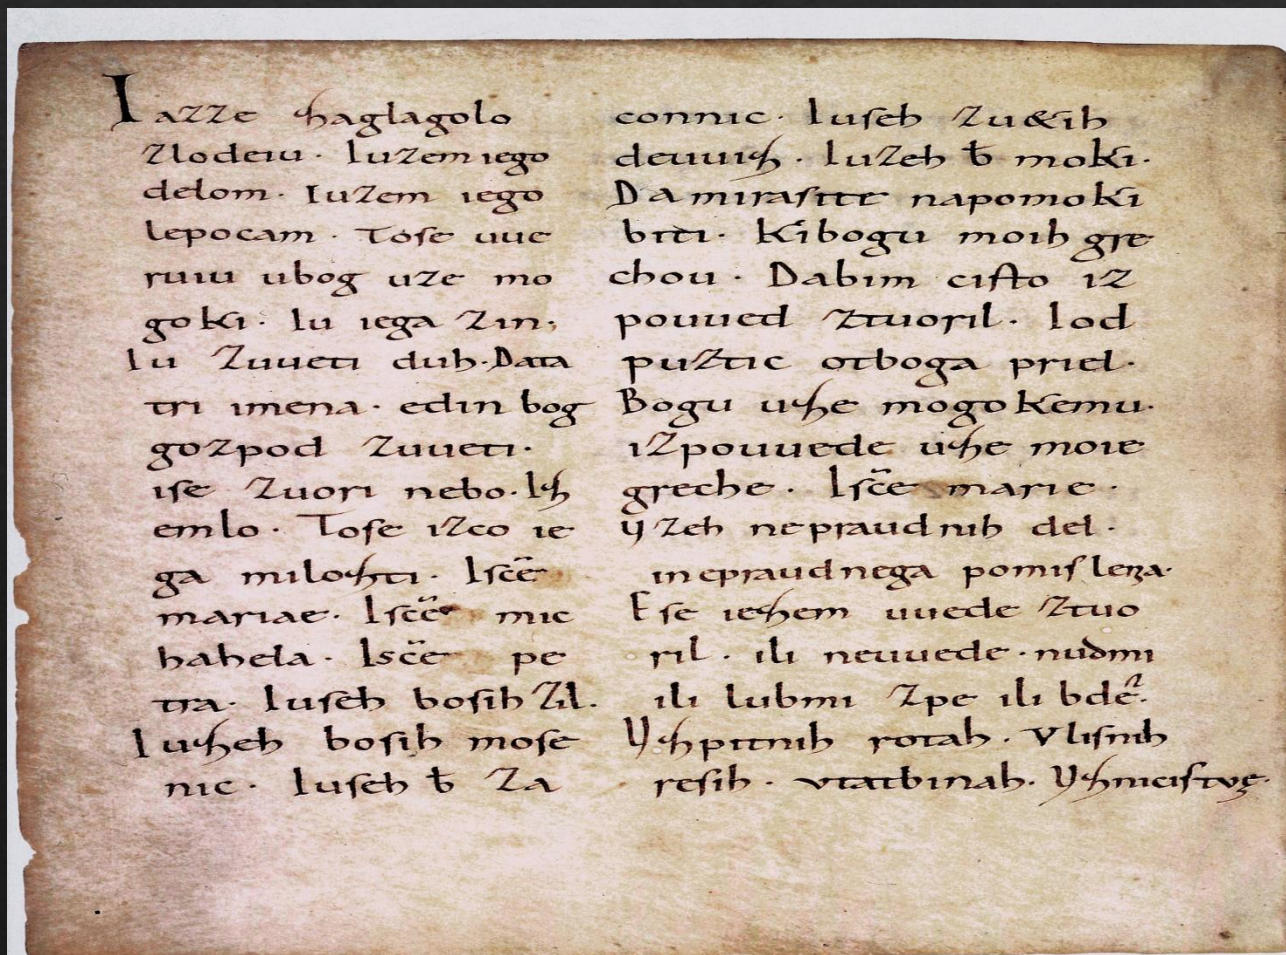 Iazze zaglagolo
zlodeiu. Iuzem iego
delom. Iuzem iego
lepocam. Tose uue
ruiu ubog uze mo
goki. Iu iega zin.
Iu zuueti duh. Data
tri imena. edin bog
gozpod zuueti.
ise zuori nebo. Iz
emlo. Tose izco ie
ga milozti. Isc̄e
mariae. Isc̄e mic
hahela. Isc̄e pe
tra. Iuseh bosih zil.
Iuzeh bosih mose
nic. Iuseh b̄ za
connic. Iuseh zu&ih
deuuiz. Iuzeh b̄ moki.
Da mirasite napomoki
biti. Ki bogu moih gre
chou. Dabim cisto iz
pouued ztuoril. Iod
puztic otboga priel.
Bogu uze mogokemu.
izpouuede uze moie
greche. Isc̄e marie.
Vzeh nepraudnih del.
inepraudnega pomislenia.
Ese iezem uuede ztuo
ril. ili neuuede. nudmi
ili lubmi zpe ili bde.
Vzpitnih rotah. Vlisnih
resih. vtatbinah. Vznicistvę.